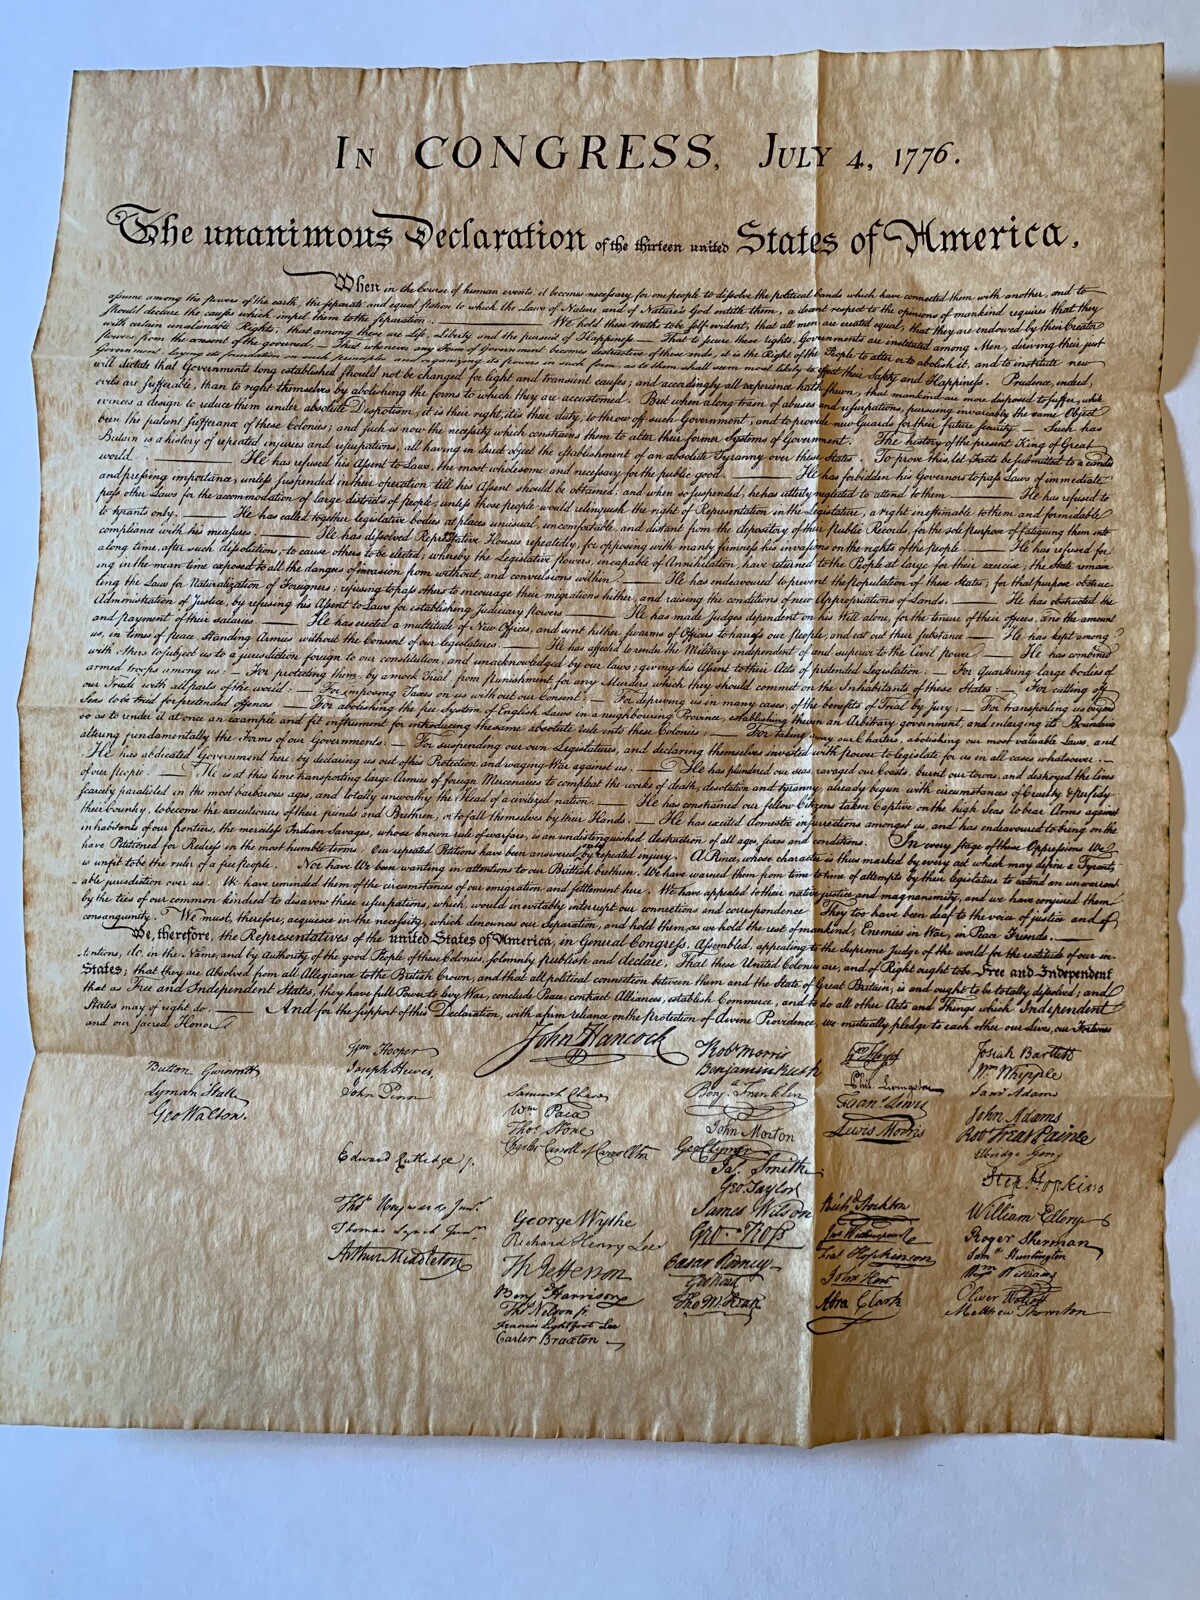 In CONGRESS, July 4, 1776.
The unanimous Declaration of the thirteen united States of America,
When in the Course of human events, it becomes necessary for one people to dissolve the political bands which have connected them with another, and to
assume among the powers of the earth, the separate and equal station to which the Laws of Nature and of Nature's God entitle them, a decent respect to the opinions of mankind requires that they
should declare the causes which impel them to the separation. We hold these truths to be self-evident, that all men are created equal, that they are endowed by their Creator
with certain unalienable Rights; that among these are Life, Liberty and the pursuit of Happiness — That to secure these rights, Governments are instituted among Men, deriving their just
powers from the consent of the governed, — That whenever any Form of Government becomes destructive of these ends, it is the Right of the People to alter or to abolish it, and to institute new
Government, laying its foundation on such principles and organizing its powers in such form, as to them shall seem most likely to effect their Safety and Happiness. Prudence, indeed,
will dictate that Governments long established should not be changed for light and transient causes; and accordingly all experience hath shewn, that mankind are more disposed to suffer, while
evils are sufferable, than to right themselves by abolishing the forms to which they are accustomed. But when a long train of abuses and usurpations, pursuing invariably the same Object
evinces a design to reduce them under absolute Despotism, it is their right, it is their duty, to throw off such Government, and to provide new Guards for their future security. — Such has
been the patient sufferance of these Colonies; and such is now the necessity which constrains them to alter their former Systems of Government. The history of the present King of Great
Britain is a history of repeated injuries and usurpations, all having in direct object the establishment of an absolute Tyranny over these States. To prove this, let Facts be submitted to a candid
world. — He has refused his Assent to Laws, the most wholesome and necessary for the public good. — He has forbidden his Governors to pass Laws of immediate
and pressing importance, unless suspended in their operation till his Assent should be obtained; and when so suspended, he has utterly neglected to attend to them — He has refused to
pass other Laws for the accommodation of large districts of people, unless those people would relinquish the right of Representation in the Legislature, a right inestimable to them and formidable
to tyrants only. — He has called together legislative bodies at places unusual, uncomfortable, and distant from the depository of their Public Records, for the sole purpose of fatiguing them into
compliance with his measures. — He has dissolved Representative Houses repeatedly, for opposing with manly firmness his invasions on the rights of the people. — He has refused for
a long time, after such dissolution, to cause others to be elected; whereby the Legislative powers, incapable of Annihilation, have returned to the People at large for their exercise; the State remain
ing in the mean time exposed to all the dangers of invasion from without, and convulsions within. — He has endeavoured to prevent the population of these States; for that purpose obstruc
ting the Laws for Naturalization of Foreigners; refusing to pass others to encourage their migrations hither, and raising the conditions of new Appropriations of Lands. — He has obstructed the
Administration of Justice, by refusing his Assent to Laws for establishing Judiciary powers. — He has made Judges dependent on his Will alone, for the tenure of their offices, and the amount
and payment of their salaries. — He has erected a multitude of New Offices, and sent hither swarms of Officers to harrass our people, and eat out their substance — He has kept among
us, in times of peace, Standing Armies without the Consent of our legislatures — He has affected to render the Military independent of and superior to the Civil power — He has combined
with others to subject us to a jurisdiction foreign to our constitution, and unacknowledged by our laws; giving his Assent to their Acts of pretended Legislation: — For Quartering large bodies of
armed troops among us: — For protecting them, by a mock Trial, from punishment for any Murders which they should commit on the Inhabitants of these States: — For cutting off
our Trade with all parts of the world: — For imposing Taxes on us without our Consent: — For depriving us in many cases, of the benefits of Trial by Jury; — For transporting us beyond
Seas to be tried for pretended offences: — For abolishing the free System of English Laws in a neighbouring Province, establishing therein an Arbitrary government, and enlarging its Boundaries
so as to render it at once an example and fit instrument for introducing the same absolute rule into these Colonies; — For taking away our Charters, abolishing our most valuable Laws, and
altering fundamentally the Forms of our Governments: — For suspending our own Legislatures, and declaring themselves invested with power to legislate for us in all cases whatsoever. —
He has abdicated Government here, by declaring us out of his Protection and waging War against us. — He has plundered our seas, ravaged our Coasts, burnt our towns, and destroyed the lives
of our people. — He is at this time transporting large Armies of foreign Mercenaries to compleat the works of death, desolation and tyranny, already begun with circumstances of Cruelty & perfidy
scarcely paralleled in the most barbarous ages, and totally unworthy the Head of a civilized nation. — He has constrained our fellow Citizens taken Captive on the high Seas to bear Arms against
their Country, to become the executioners of their friends and Brethren, or to fall themselves by their Hands. — He has excited domestic insurrections amongst us, and has endeavoured to bring on the
inhabitants of our frontiers, the merciless Indian Savages, whose known rule of warfare, is an undistinguished destruction of all ages, sexes and conditions. In every stage of these Oppressions We
have Petitioned for Redress in the most humble terms: Our repeated Petitions have been answered only by repeated injury. A Prince, whose character is thus marked by every act which may define a Tyrant,
is unfit to be the ruler of a free people. Nor have We been wanting in attentions to our Brittish brethren. We have warned them from time to time of attempts by their legislature to extend an unwarrant
able jurisdiction over us. We have reminded them of the circumstances of our emigration and settlement here. We have appealed to their native justice and magnanimity, and we have conjured them
by the ties of our common kindred to disavow these usurpations, which, would inevitably interrupt our connections and correspondence They too have been deaf to the voice of justice and of
consanguinity. We must, therefore, acquiesce in the necessity, which denounces our Separation, and hold them, as we hold the rest of mankind, Enemies in War, in Peace Friends. —
We, therefore, the Representatives of the united States of America, in General Congress, Assembled, appealing to the Supreme Judge of the world for the rectitude of our in-
tentions, do, in the Name, and by authority of the good People of these Colonies, solemnly publish and declare, That these United Colonies are, and of Right ought to be Free and Independent
States; that they are Absolved from all Allegiance to the British Crown, and that all political connection between them and the State of Great Britain, is and ought to be totally dissolved; and
that as Free and Independent States, they have full Power to levy War, conclude Peace, contract Alliances, establish Commerce, and to do all other Acts and Things which Independent
States may of right do. — And for the support of this Declaration, with a firm reliance on the protection of divine Providence, we mutually pledge to each other our Lives, our Fortunes
and our sacred Honor
John Hancock
Button Gwinnett
Lyman Hall
Geo Walton.
Wm Hooper
Joseph Hewes,
John Penn
Edward Rutledge /.
Thos Heyward Junr.
Thomas Lynch Junr.
Arthur Middleton
Samuel Chase
Wm Paca
Thos Stone
Charles Carroll of Carrollton
George Wythe
Richard Henry Lee
Th Jefferson
Benj Harrison
Thos Nelson jr
Francis Lightfoot Lee
Carter Braxton
Robt Morris
Benjamin Rush
Benja Franklin
John Morton
Geo Clymer
Jas Smith
Geo. Taylor
James Wilson
Geo. Ross
Caesar Rodney
Geo Read
Tho M:Kean
Wm Floyd
Phil. Livingston
Frans Lewis
Lewis Morris
Richd Stockton
Jno Witherspoon
Fras Hopkinson
John Hart
Abra Clark
Josiah Bartlett
Wm Whipple
Saml Adams
John Adams
Robt Treat Paine
Elbridge Gerry
Step. Hopkins
William Ellery
Roger Sherman
Saml Huntington
Wm Williams
Oliver Wolcott
Matthew Thornton